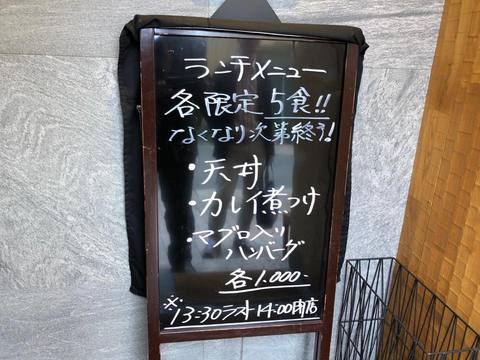 ランチメニュー
各限定5食!!
なくなり次第終了!
・天丼
・カレイ煮つけ
・マグロ入り
ハンバーグ
各1.000-
※13:30ラスト14:00閉店